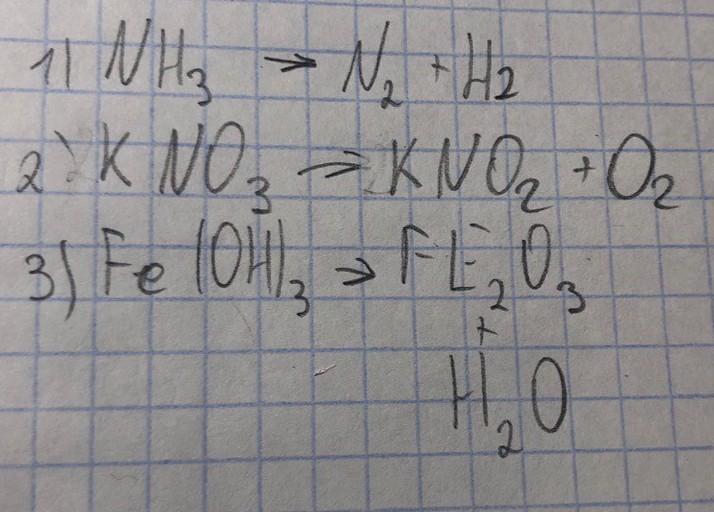 1) NH₃ → N₂ + H₂
2) KNO₃ → KNO₂ + O₂
3) Fe(OH)₃ → FE₂O₃
+
H₂O